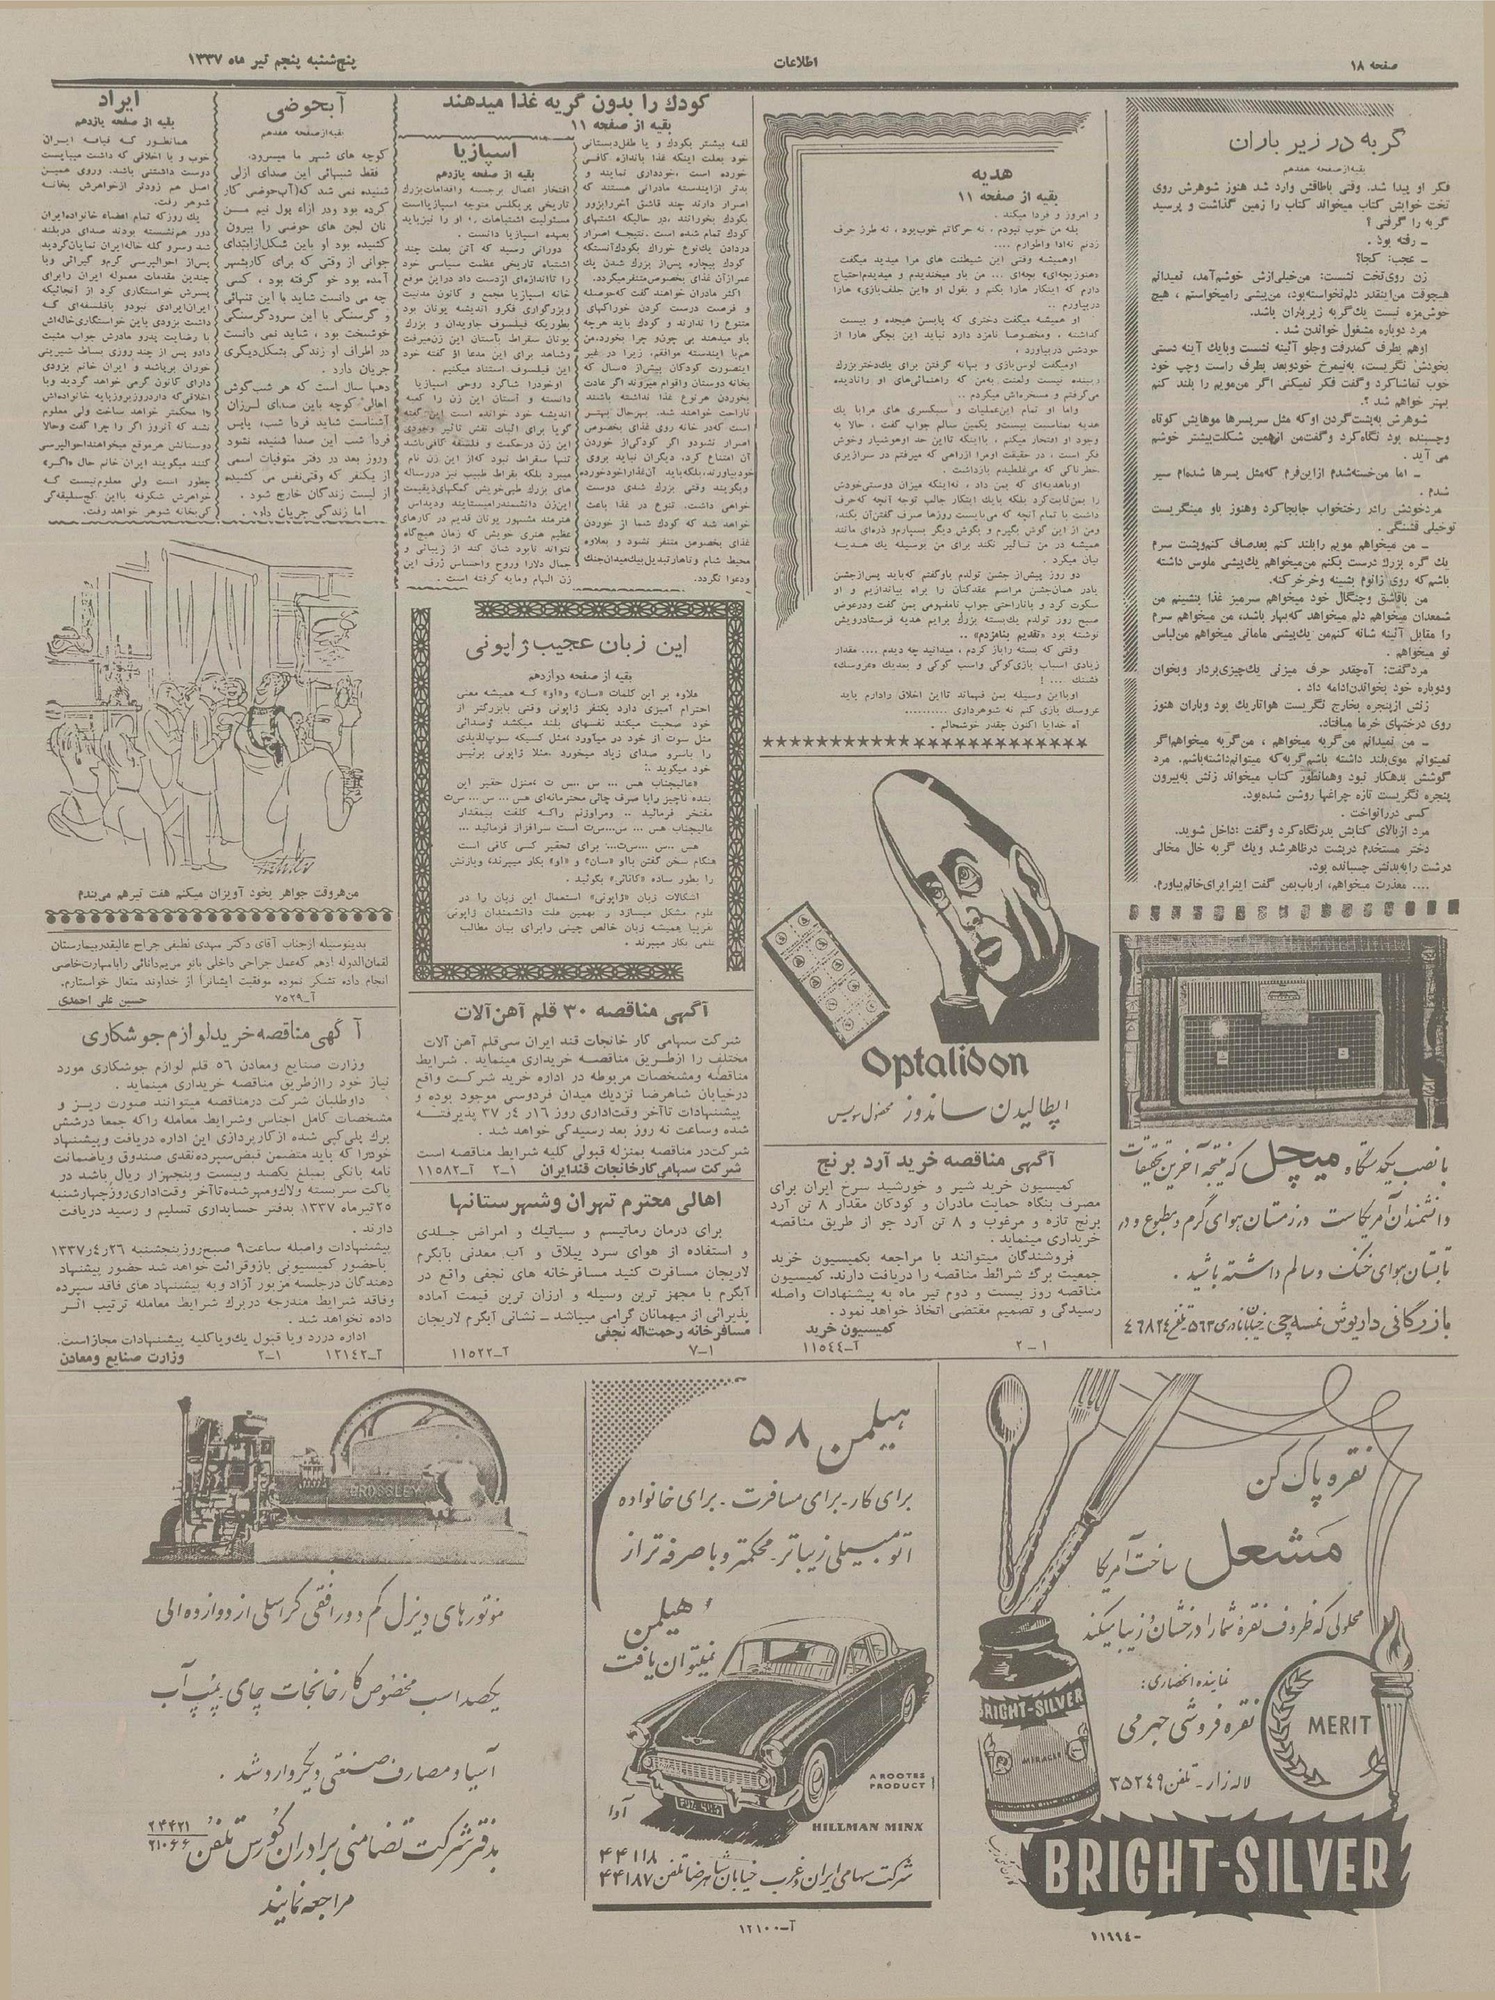 صفحه ۱۸
اطلاعات
پنج‌شنبه پنجم تیر ماه ۱۳۳۷
گربه در زیر باران
بقیه از صفحه هفدهم
فکر او پیدا شد. وقتی باطاقش وارد شد هنوز شوهرش روی
تخت خوابش کتاب میخواند کتاب را زمین گذاشت و پرسید
گربه را گرفتی ؟
ـ رفته بود .
ـ عجب: کجا؟
زن روی تخت نشست: من خیلی ازش خوشم آمد، نمیدانم
هیچوقت من اینقدر دلم نخواسته بود، من پیشی را میخواستم ، هیچ
خوش مزه نیست یك گربه زیر باران باشد.
مرد دوباره مشغول خواندن شد .
اوهم بطرف کمد رفت وجلو آئینه نشست وبایك آینه دستی
بخودش نگریست، به نیمرخ خود وبعد بطرف راست وچپ خود
خوب تماشا کرد وگفت فکر نمیکنی اگر من مویم را بلند کنم
بهتر خواهم شد ؟.
شوهرش به پشت گردن او که مثل سر پسرها موهایش کوتاه
وچسبنده بود نگاه کرد وگفت من از همین شکلت بیشتر خوشم
می آید .
ـ اما من خسته شدم از این فرم که مثل پسرها شده ام سیر
شدم .
مرد خودش را در رختخواب جابجا کرد وهنوز باو مینگریست
تو خیلی قشنگی .
ـ من میخواهم مویم را بلند کنم بعد صاف کنم و پشت سرم
یك گره بزرك درست بکنم من میخواهم یك پیشی ملوس داشته
باشم که روی زانوم بشینه وخرخر کنه.
من با قاشق وچنگال خود میخواهم سرمیز غذا بنشینم من
شمعدان میخواهم دلم میخواهد که بهار باشد، من میخواهم سرم
را مقابل آئینه شانه کنم من یك پیشی مامانی میخواهم من لباس
نو میخواهم .
مرد گفت: آه چقدر حرف میزنی یك چیزی بردار وبخوان
ودوباره خود بخواندن ادامه داد .
زنش از پنجره بخارج نگریست هوا تاریك بود وباران هنوز
روی درختهای خرما میافتاد.
ـ من نمیدانم من گربه میخواهم ، من گربه میخواهم اگر
نمیتوانم موی بلند داشته باشم گربه که میتوانم داشته باشم. مرد
گوشش بدهکار نبود وهمانطور کتاب میخواند زنش به بیرون
پنجره نگریست تازه چراغها روشن شده بود.
کسی در را نواخت .
مرد از بالای کتابش بدر نگاه کرد وگفت :داخل شوید.
دختر مستخدم درپشت در ظاهر شد ویك گربه خال مخالی
درشت را به بدنش چسبانده بود.
.... معذرت میخواهم، ارباب بمن گفت اینرا برای خانم بیاورم.
با نصب یکدستگاه میچل که نتیجه آخرین تحقیقات
دانشمندان آمریکاست در زمستان هوای گرم و مطبوع و در
تابستان هوای خنک و سالم داشته باشید .
بازرگانی داریوش نمسه چی خیابان نادری ۵٦۳ـ تلفن ٤٦٨٢٤
هدیه
بقیه از صفحه ۱۱
و امروز و فردا میکند .
بله من خوب نبودم ، نه حرکاتم خوب بود ، نه طرز حرف
زدنم نه ادا واطوارم ....
او همیشه وقتی این شیطنت های مرا میدید میگفت
«هنوز بچه‌ای» بچه‌ای ... من باو میخندیدم و میدیدم احتیاج
دارم که اینکار هارا بکنم و بقول او «این جلف بازی» هارا
دربیاورم ..
او همیشه میگفت دختری که پابسن هیجده و بیست
گذاشته ، ومخصوصا نامزد دارد نباید این بچگی هارا از
خودش دربیاورد .
اومیگفت لوس بازی و بهانه گرفتن برای یك دختر بزرك
زیبنده نیست ولعنت به من که راهنمائی های او را نادیده
می گرفتم و مسخره اش میکردم ..
واما او تمام این عملیات و سبکسری های مرا با یك
هدیه بمناسبت بیست و یکمین سالم جواب گفت ، حالا به
وجود او افتخار میکنم ، با اینکه تا این حد او هوشیار وخوش
فکر است ، در حقیقت او مرا از راهی که میرفتم در سرازیری
خطرناکی که می غلطیدم بازداشت .
او باهدیه ای که بمن داد ، نه اینکه میزان دوستی خودش
را بمن ثابت کرد بلکه بایك ابتکار جالب توجه آنچه که حرف
داشت با تمام آنچه که می بایست روزها صرف گفتن آن بکند،
ومن از این گوش بگیرم و بگوش دیگر بسپارم و ذره ای مانند
همیشه در من تأثیر نکند برای من بوسیله یك هدیه
بیان میکرد .
دو روز پیش از جشن تولدم باو گفتم که باید پس از جشن
یادر همان جشن مراسم عقد کنان را براه بیاندازیم و او
سکوت کرد و باناراحتی جواب نامفهومی بمن گفت ودرعوض
صبح روز تولدم یك بسته بزرك برایم هدیه فرستاد رویش
نوشته بود «تقدیم بنامزدم» ..
وقتی که بسته را باز کردم ، میدانید چه دیدم .... مقدار
زیادی اسباب بازی کوکی واسب کوکی و بعد یك «عروسك»
قشنك ... !
او با این وسیله بمن فهماند تا این اخلاق را دارم باید
عروسك بازی کنم نه شوهرداری ..........
آه خدایا اکنون چقدر خوشحالم .
Optalidon
اپتالیدن ساندوز محصول سویس
آگهی مناقصه خرید آرد برنج
کمیسیون خرید شیر و خورشید سرخ ایران برای
مصرف بنگاه حمایت مادران و کودکان مقدار ۸ تن آرد
برنج تازه و مرغوب و ۸ تن آرد جو از طریق مناقصه
خریداری مینماید .
فروشندگان میتوانند با مراجعه بکمیسیون خرید
جمعیت برگ شرائط مناقصه را دریافت دارند. کمیسیون
مناقصه روز بیست و دوم تیر ماه به پیشنهادات واصله
رسیدگی و تصمیم مقتضی اتخاذ خواهد نمود .
کمیسیون خرید
۱ - ۲
آ-۱۱٥٤٤
کودك را بدون گریه غذا میدهند
بقیه از صفحه ۱۱
لقمه بیشتر بکودك و یا طفل دبستانی
خود بعلت اینکه غذا باندازه کافی
خورده است ،خودداری نمایند و
بدتر از ایندسته مادرانی هستند که
اصرار دارند چند قاشق آخر را بزور
بکودك بخورانند ،در حالیکه اشتهای
کودك تمام شده است .نتیجه اصرار
دردادن یك نوع خوراك بکودك آنستکه
کودك بیچاره پس از بزرك شدن یك
عمر از آن غذای بخصوص متنفر میگردد.
اکثر مادران خواهند گفت که حوصله
و فرصت درست کردن خوراکهای
متنوع را ندارند و کودك باید هرچه
باو میدهند بی چون و چرا بخورد،من
هم با ایندسته موافقم، زیرا در غیر
اینصورت کودکان بیش از ۵ سال که
بخانه دوستان واقوام میروند اگر عادت
بخوردن هر نوع غذا نداشته باشند
ناراحت خواهند شد. بهرحال بهتر
است که در خانه روی غذای بخصوص
اصرار نشود و اگر کودکی از خوردن
آن امتناع کرد، دیگران نباید بروی
خود بیاورند، بلکه باید آن غذا را خود خورده
وبگویند وقتی بزرك شدی دوست
خواهی داشت. تنوع در غذا باعث
خواهد شد که کودك شما از خوردن
غذای بخصوص متنفر نشود و بعلاوه
محیط شام و ناهار تبدیل بیك میدان جنك
ودعوا نگردد.
اسپازیا
بقیه از صفحه یازدهم
افتخار اعمال برجسته واقدامات بزرك
تاریخی پریکلس متوجه اسپازیا است
مسئولیت اشتباهات او را نیز باید
بعهده اسپازیا دانست .
دورانی رسید که آتن بعلت چند
اشتباه تاریخی عظمت سیاسی خود
را تا اندازه ای از دست داد در این موقع
خانه اسپازیا مجمع و کانون مدنیت
وبزرگواری فکرو اندیشه یونان بود
بطوریکه فیلسوف جاویدان و بزرك
یونان سقراط باستان این زن میرفت
وشاهد برای این مدعا او گفته خود
این فیلسوف استناد میکنیم .
اوخودرا شاگرد روحی اسپازیا
دانسته و آستان این زن را کعبه
اندیشه خود خوانده است این گفته
گویا برای اثبات نقش تأثیر وجودی
این زن درحکمت و فلسفه کافی باشد
تنها سقراط نبود که از این زن نام
میبرد بلکه بقراط طبیب نیز در رساله
های بزرك طبی خویش کمکهای ذیقیمت
این زن دانشمند را میستایند و دیدیاس
هنرمند مشهور یونان قدیم در کارهای
عظیم هنری خویش که زمان هیچگاه
نتواند نابود شان کند از زیبائی و
جمال دلارا و روح واحساس ژرف این
زن الهام ومایه گرفته است .
این زبان عجیب ژاپونی
بقیه از صفحه دوازدهم
علاوه بر این کلمات «سان» و «او» که همیشه معنی
احترام آمیزی دارد یکنفر ژاپونی وقتی بابزرگتر از
خود صحبت میکند نفسهای بلند میکشد وصدائی
مثل سوت از خود در میاورد ،مثل کسیکه سوپ لذیذی
را باسر و صدای زیاد میخورد .مثلا ژاپونی برئیس
خود میگوید .:
«عالیجناب هس ... س ..س ت ،منزل حقیر این
بنده ناچیز را با صرف چائی محترمانه ای هس ... س ... س‌ت
مفتخر فرمائید .. ومراوزنم را که کلفت بیمقدار
عالیجناب هس ... س...س‌ت است سرافراز فرمائید ...
هس ..س ...س‌ت... برای تحقیر کسی کافی است
هنگام سخن گفتن بااو «سان» و «او» بکار میبرند، وبازنش
را بطور ساده «کانائی» بگوئید .
اشکالات زبان «ژاپونی» استعمال این زبان را در
علوم مشکل میسازد و بهمین علت دانشمندان ژاپونی
تقریبا همیشه زبان خالص چینی را برای بیان مطالب
علمی بکار میبرند .
آگهی مناقصه ۳۰ قلم آهن آلات
شرکت سهامی کار خانجات قند ایران سی قلم آهن آلات
مختلف را از طریق مناقصه خریداری مینماید . شرایط
مناقصه ومشخصات مربوطه در اداره خرید شرکت واقع
درخیابان شاهرضا نزدیك میدان فردوسی موجود بوده و
پیشنهادات تا آخر وقت اداری روز ۱٦ر٤ر ۳۷ پذیرفته
شده وساعت نه روز بعد رسیدگی خواهد شد .
شرکت در مناقصه بمنزله قبولی کلیه شرایط مناقصه است
شرکت سهامی کارخانجات قند ایران ۱-۲ آ-۱۱۵۸۲
اهالی محترم تهران و شهرستانها
برای درمان رماتیسم و سیاتیك و امراض جلدی
و استفاده از هوای سرد ییلاق و آب معدنی بآبگرم
لاریجان مسافرت کنید مسافرخانه های نجفی واقع در
آبگرم با مجهز ترین وسیله و ارزان ترین قیمت آماده
پذیرائی از میهمانان گرامی میباشد ـ نشانی آبگرم لاریجان
مسافرخانه رحمت اله نجفی
۱-۷
آ-۱۱۵۲۲
آبحوضی
بقیه از صفحه هفدهم
کوچه های شهر ما میسرود.
فقط شبهائی این صدای ازلی
شنیده نمی شد که (آب حوضی کار
کرده بود ودر ازاء پول نیم من
نان لجن های حوضی را بیرون
کشیده بود او باین شکل از ابتدای
جوانی از وقتی که برای کار بشهر
آمده بود خو گرفته بود ، کسی
چه می دانست شاید با این تنهائی
و گرسنگی با این سرود گرسنگی
خوشبخت بود ، شاید نمی دانست
در اطراف او زندگی بشکل دیگری
جریان دارد .
دهها سال است که هر شب گوش
اهالی کوچه باین صدای لرزان
آشناست شاید فردا شب، یا پس
فردا شب این صدا شنیده نشود
وروز بعد در دفتر متوفیات اسمی
از یکنفر که وقتی نفس می کشیده
از لیست زندگان خارج شود .
اما زندگی جریان دارد .
ایراد
بقیه از صفحه یازدهم
همانطور که قیافه ایران
خوب و با اخلاقی که داشت میبایست
دوست داشتنی باشد. وروی همین
اصل هم زودتر از خواهرش بخانه
شوهر رفت.
یك روز که تمام اعضاء خانواده ایران
دور هم نشسته بودند صدای در بلند
شد وسرو کله خاله ایران نمایان گردید
پس از احوالپرسی گرم و گیرائی وبا
چندین مقدمات معموله ایران را برای
پسرش خواستگاری کرد از آنجائیکه
ایران ایرادی نبود و بافلسفه ای که
داشت بزودی باین خواستگاری خاله اش
با رضایت پدر و مادرش جواب مثبت
داد و پس از چند روزی بساط شیرینی
خوران برپاشد و ایران خانم بزودی
دارای کانون گرمی خواهد گردید وبا
اخلاقی که دارد روز بروز پایه خانواده اش
را محکمتر خواهد ساخت ولی معلوم
نشد که آنروز اگر را چرا گفت وحالا
دوستانش هر موقع میخواهند احوالپرسی
کنند میگویند ایران خانم حال «اگر»
چطور است ولی معلوم نیست که
خواهرش شکوفه بااین کج سلیقه گی
کی بخانه شوهر خواهد رفت.
من هروقت جواهر بخود آویزان میکنم هفت تیر هم می بندم
بدینوسیله از جناب آقای دکتر مهدی لطیفی جراح عالیقدر بیمارستان
لقمان الدوله ادهم که عمل جراحی داخلی بانو مریم دانائی را با مهارت خاصی
انجام داده تشکر نموده موفقیت ایشانرا از خداوند متعال خواستارم.
آ-۷۵۲۹ حسین علی احمدی
آگهی مناقصه خرید لوازم جوشکاری
وزارت صنایع ومعادن ٥٦ قلم لوازم جوشکاری مورد
نیاز خود را از طریق مناقصه خریداری مینماید .
داوطلبان شرکت در مناقصه میتوانند صورت ریز و
مشخصات کامل اجناس وشرایط معامله را که جمعا در شش
برك پلی کپی شده از کارپردازی این اداره دریافت و پیشنهاد
خود را که باید متضمن قبض سپرده نقدی صندوق ویا ضمانت
نامه بانکی بمبلغ یکصد وبیست وپنجهزار ریال باشد در
پاکت سربسته ولاك و مهر شده تا آخر وقت اداری روز چهارشنبه
۲۵ تیر ماه ۱۳۳۷ بدفتر حسابداری تسلیم و رسید دریافت
دارند .
پیشنهادات واصله ساعت ۹ صبح روز پنجشنبه ۲٦ر٤ر۱۳۳۷
باحضور کمیسیونی باز وقرائت خواهد شد حضور پیشنهاد
دهندگان درجلسه مزبور آزاد وبه پیشنهاد های فاقد سپرده
وفاقد شرایط مندرجه دربرك شرایط معامله ترتیب اثر
داده نخواهد شد .
اداره دررد ویا قبول یك ویا کلیه پیشنهادات مجاز است.
آ-۱۲۱٤۲ ۱-۲ وزارت صنایع ومعادن
نقره پاک کن
مشعل ساخت آمریکا
محلولی که ظروف نقره شما را درخشان و زیبا میکند
نماینده انحصاری :
نقره فروشی جهرمی
لاله زار - تلفن ۳۵۲۴۹
MERIT
BRIGHT-SILVER
MIRACLE
BRIGHT-SILVER
-۱۱۹۹٤
هیلمن ۵۸
برای کار - برای مسافرت - برای خانواده
اتومبیلی زیباتر - محکمتر و با صرفه تر از
هیلمن
نمیتوان یافت
A ROOTES
PRODUCT
آوا
HILLMAN MINX
شرکت سهامی ایران و غرب خیابان شاهرضا تلفن ۴۴۱۱۸
۴۴۱۸۷
آ-۱۲۱۰۰
CROSSLEY
موتورهای دیزل کم دور افقی کراسلی از دوازده الی
یکصد اسب مخصوص کارخانجات چای - پمپ آب
آسیا و مصارف صنعتی دیگر وارد شد .
بدفتر شرکت تضامنی برادران کورس تلفن ۲۴۴۲۱
۲۱۰۶۶
مراجعه نمایند